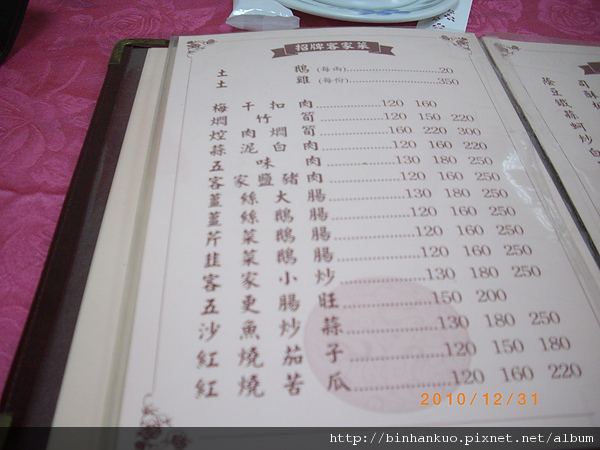 招牌客家菜
土 鵝 (每兩)......20
土 雞 (每份)......350
梅干扣肉......120 160
燜竹筍......120 150 220
焢肉燜筍......160 220 300
蒜泥白肉......120 160 220
五味肉......130 180 250
客家鹽豬肉......120 160 250
薑絲大腸......130 180 250
薑絲鵝腸......120 160 250
芹菜鵝腸......120 160 250
韭菜鵝腸......120 160 250
客家小炒......130 180 250
五更腸旺......150 200
沙魚炒蒜......130 180 250
紅燒茄子......120 150 180
紅燒苦瓜......120 160 220
2010/12/31
http://binhankuo.pixnet.net/album